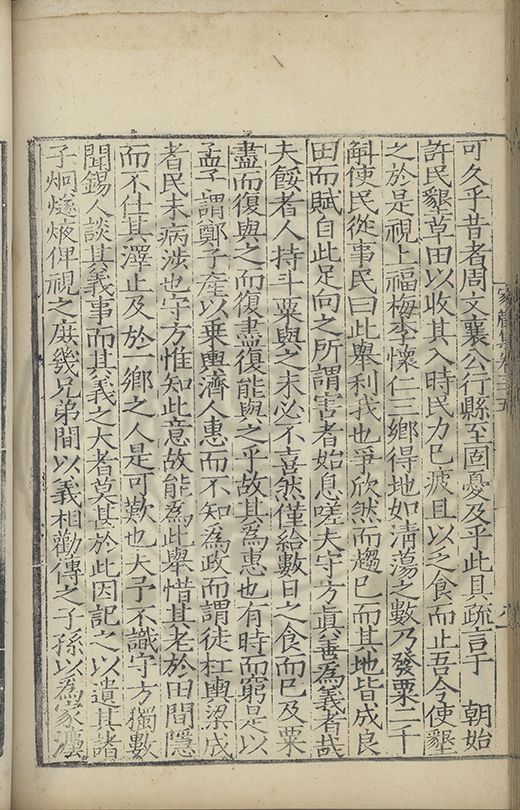 可久乎昔者周文襄公行縣至固憂及乎此具疏言于 朝始
許民墾草田以收其入時民力巳疲且以之食而止吾今使墾
之於是視上福梅李懷仁三鄉得地如清蕩之數乃發粟二千
斛使民從事民曰此舉利我也爭欣然而趨巳而其地皆成良
田而賦自此足向之所謂害者始息嗟夫守方眞善為義者哉
夫餒者人持斗粟與之未必不喜然僅給數日之食而巳及粟
盡而復與之而復盡復能與之乎故其為惠也有時而窮是以
孟子謂鄭子產以乗輿濟人惠而不知為政而謂徒杠輿梁成
者民未病涉也守方惟知此意故能為此舉惜其老於田間隱
而不仕其澤止及於一鄉之人是可歎也夫予不識守方獨數
聞錫人談其義事而其義之大者莫甚於此因記之以遺其諸
子炯燧俾視之庶幾兄弟間以義相勸傳之子孫以為家灋
家藏集卷三十五